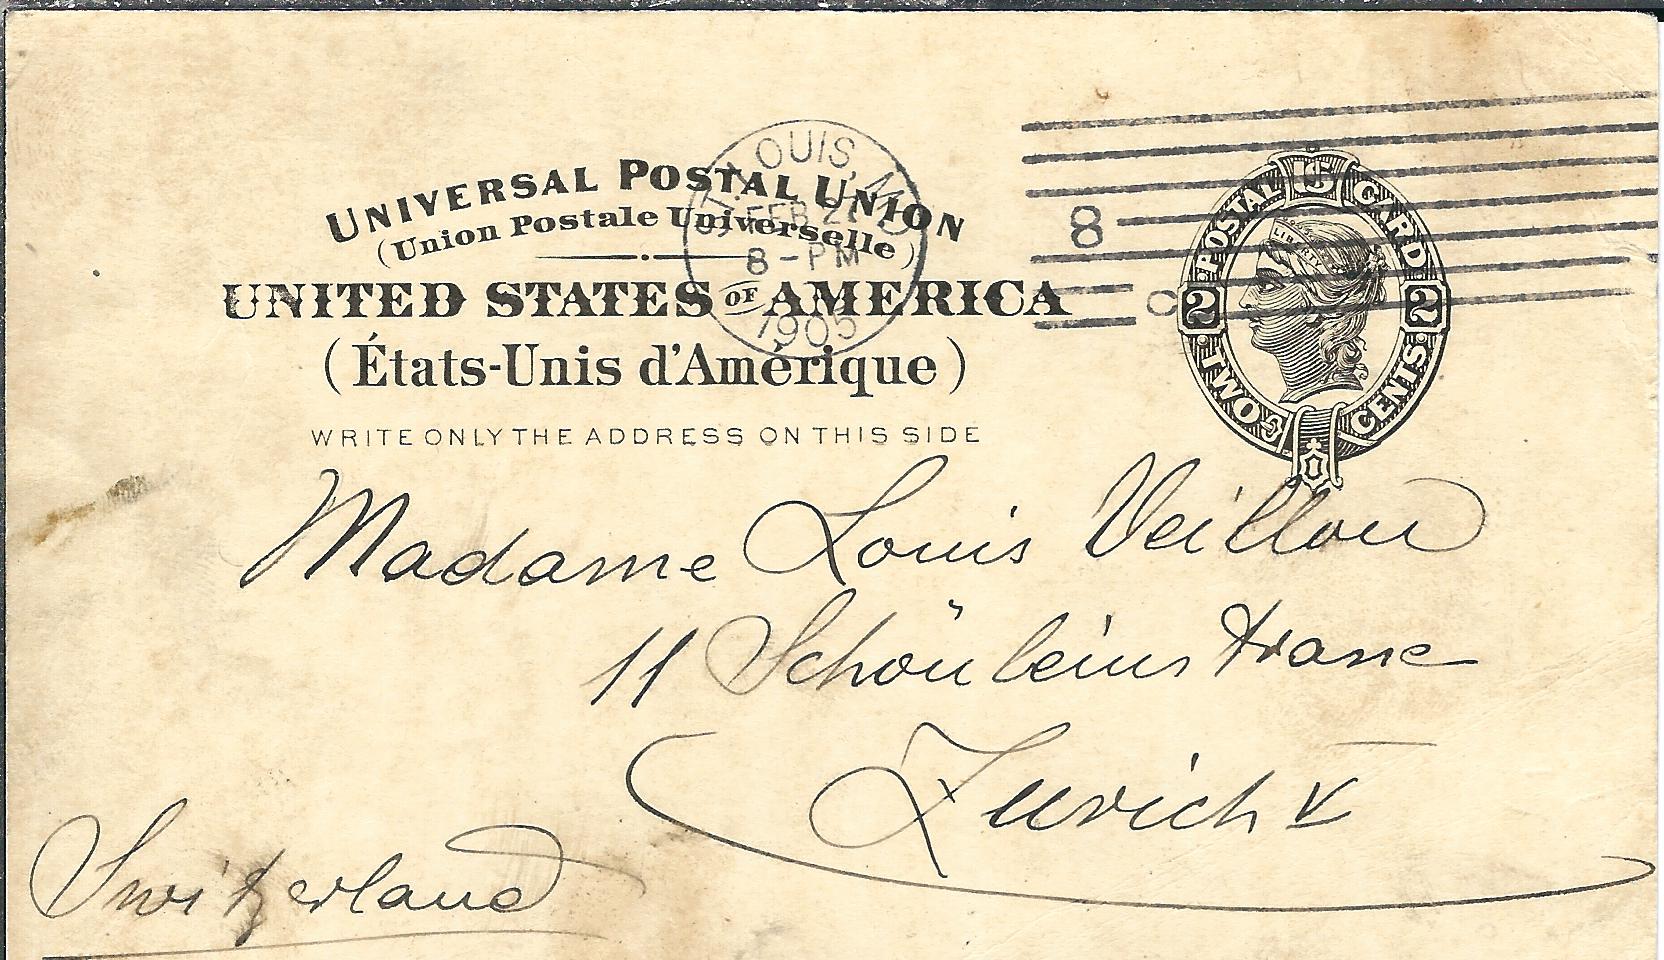 UNIVERSAL POSTAL UNION
(Union Postale Universelle)
UNITED STATES OF AMERICA
(États-Unis d'Amérique)
WRITE ONLY THE ADDRESS ON THIS SIDE
ST. LOUIS, MO
FEB 2
8 - PM
1905
8
C
POSTAL CARD
LIBERTY
2 2
TWO CENTS
Madame Louis Veillon
11 Schönleinstrasse
Zurich V
Switzerland